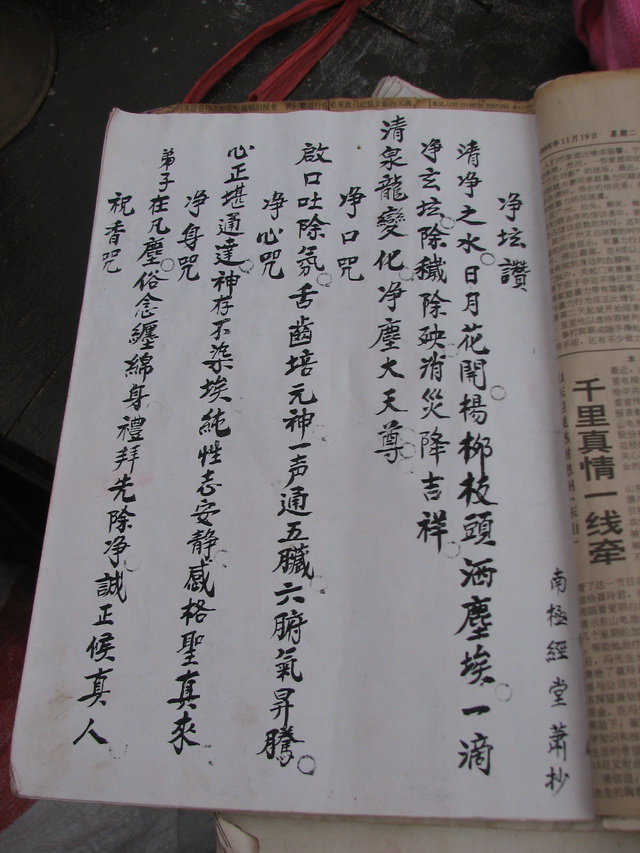 净坛讚
清净之水。日月花開。楊柳枝頭洒塵埃。一滴
净玄坛。除穢除殃消災降吉祥。
清泉龍變化。净塵大天尊。
净口咒
啟口吐除氛。舌齒培元神一声通五臟。六腑氣昇騰。
净心咒
心正堪通達。神存不染埃純性志安静。感格聖真來
净身咒
弟子在凡塵。俗念纏綿身禮拜先除净。誠正候真人。
祝香咒
南極經堂蕭抄
年11月19日 星期二
千里真情一线牵